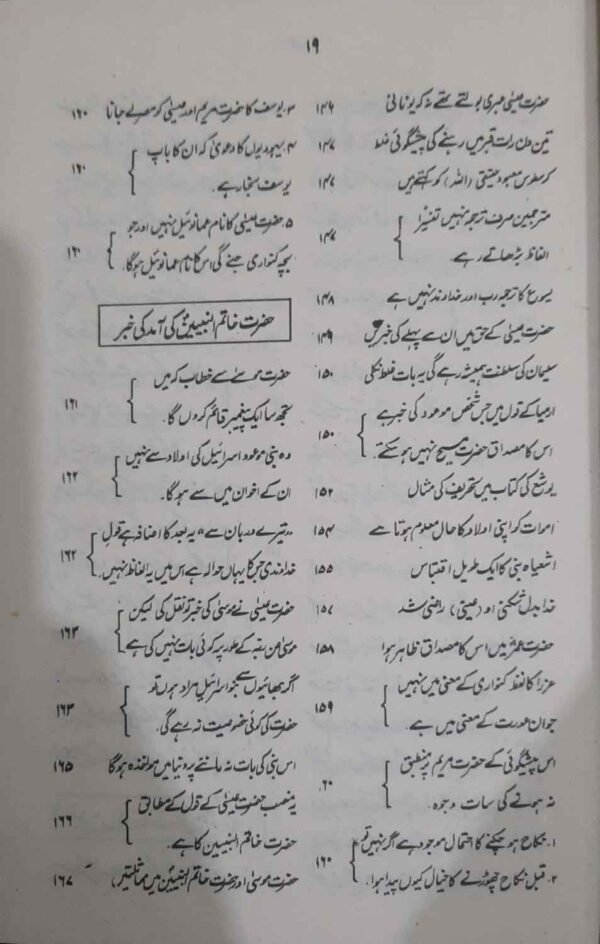 ۱۹
حضرت عیسٰی عبری بولتے تھے نہ کہ یونانی ۱۴۶
تین دن رات قبر میں رہنے کی پیشگوئی غلط ۱۴۷
کرسطوس معبود حقیقی (اللہ) کو کہتے ہیں ۱۴۷
مترجمین صرف ترجمہ نہیں تفسیرًا
الفاظ بڑھاتے رہے۔ ۱۴۷
یسوع کا ترجمہ رب اور خداوند نہیں ہے ۱۴۸
حضرت عیسٰی کے حق میں ان سے پہلے کی خبریں ۱۴۹
سلیمان کی سلطنت ہمیشہ رہے گی یہ بات غلط نکلی ۱۵۰
ارمیا کے قول میں جس شخص موعود کی خبر ہے
اس کا مصداق حضرت مسیح نہیں ہو سکتے۔ ۱۵۰
یوشع کی کتاب میں تحریف کی مثال ۱۵۲
اموات کو اپنی اولاد کا حال معلوم ہوتا ہے ۱۵۴
اشعیاہ نبی کا ایک طویل اقتباس ۱۵۵
خدا بدل شکنی او (عیسٰی) راضی شد ۱۵۷
حضرت عمرؓ میں اس کا مصداق ظاہر ہوا ۱۵۸
عزرا کا لفظ کنواری کے معنی میں نہیں
جوان عورت کے معنی میں ہے۔ ۱۵۹
اس پیشگوئی کے حضرت مریم پر منطبق
نہ ہونے کی سات وجوہ ۶۰
۱۔ نکاح ہو چکنے کا احتمال موجود ہے اگر نہیں تو
۲۔ قبل نکاح چھوڑنے کا خیال کیوں پیدا ہوا۔ ۱۶۰
۳۔ یوسف کا حضرت مریم اور عیسٰی کو مصر لے جانا ۱۶۰
۴۔ یہودیوں کا دعویٰ کہ ان کا باپ
یوسف نجار ہے۔ ۱۶۰
۵۔ حضرت عیسٰی کا نام عمانوئیل نہیں اور جو
بچہ کنواری جنے گی اس کا نام عمانوئیل ہوگا۔ ۱۶۰
حضرت خاتم النبیینؐ کی آمد کی خبر
حضرت موسٰے سے خطاب کہ میں
تجھ سا ایک پیغمبر قائم کروں گا۔ ۱۶۱
وہ نبی موعود اسرائیل کی اولاد سے نہیں
ان کے اخوان میں سے ہوگا۔ ۱۶۲
"تیرے درمیان سے" یہ بعد کا اضافہ ہے قول
خداوندی جس کا یہاں حوالہ ہے اس میں یہ الفاظ نہیں۔ ۱۶۲
حضرت عیسٰی نے موسٰی کی خبر تو نقل کی لیکن
موسٰی من بقیہ کے طور پر کوئی بات نہیں کی ہے ۱۶۳
اگر بھائیوں سے بنو اسرائیل مراد ہوں تو
حضرت کی کوئی خصوصیت نہ رہے گی۔ ۱۶۳
اس نبی کی بات نہ ماننے پر دنیا میں مواخذہ ہوگا ۱۶۵
یہ منصب حضرت عیسٰی کے قول کے مطابق
حضرت خاتم النبیین کا ہے۔ ۱۶۶
حضرت موسٰی اور حضرت خاتم النبیین میں مماثلتیں ۱۶۷